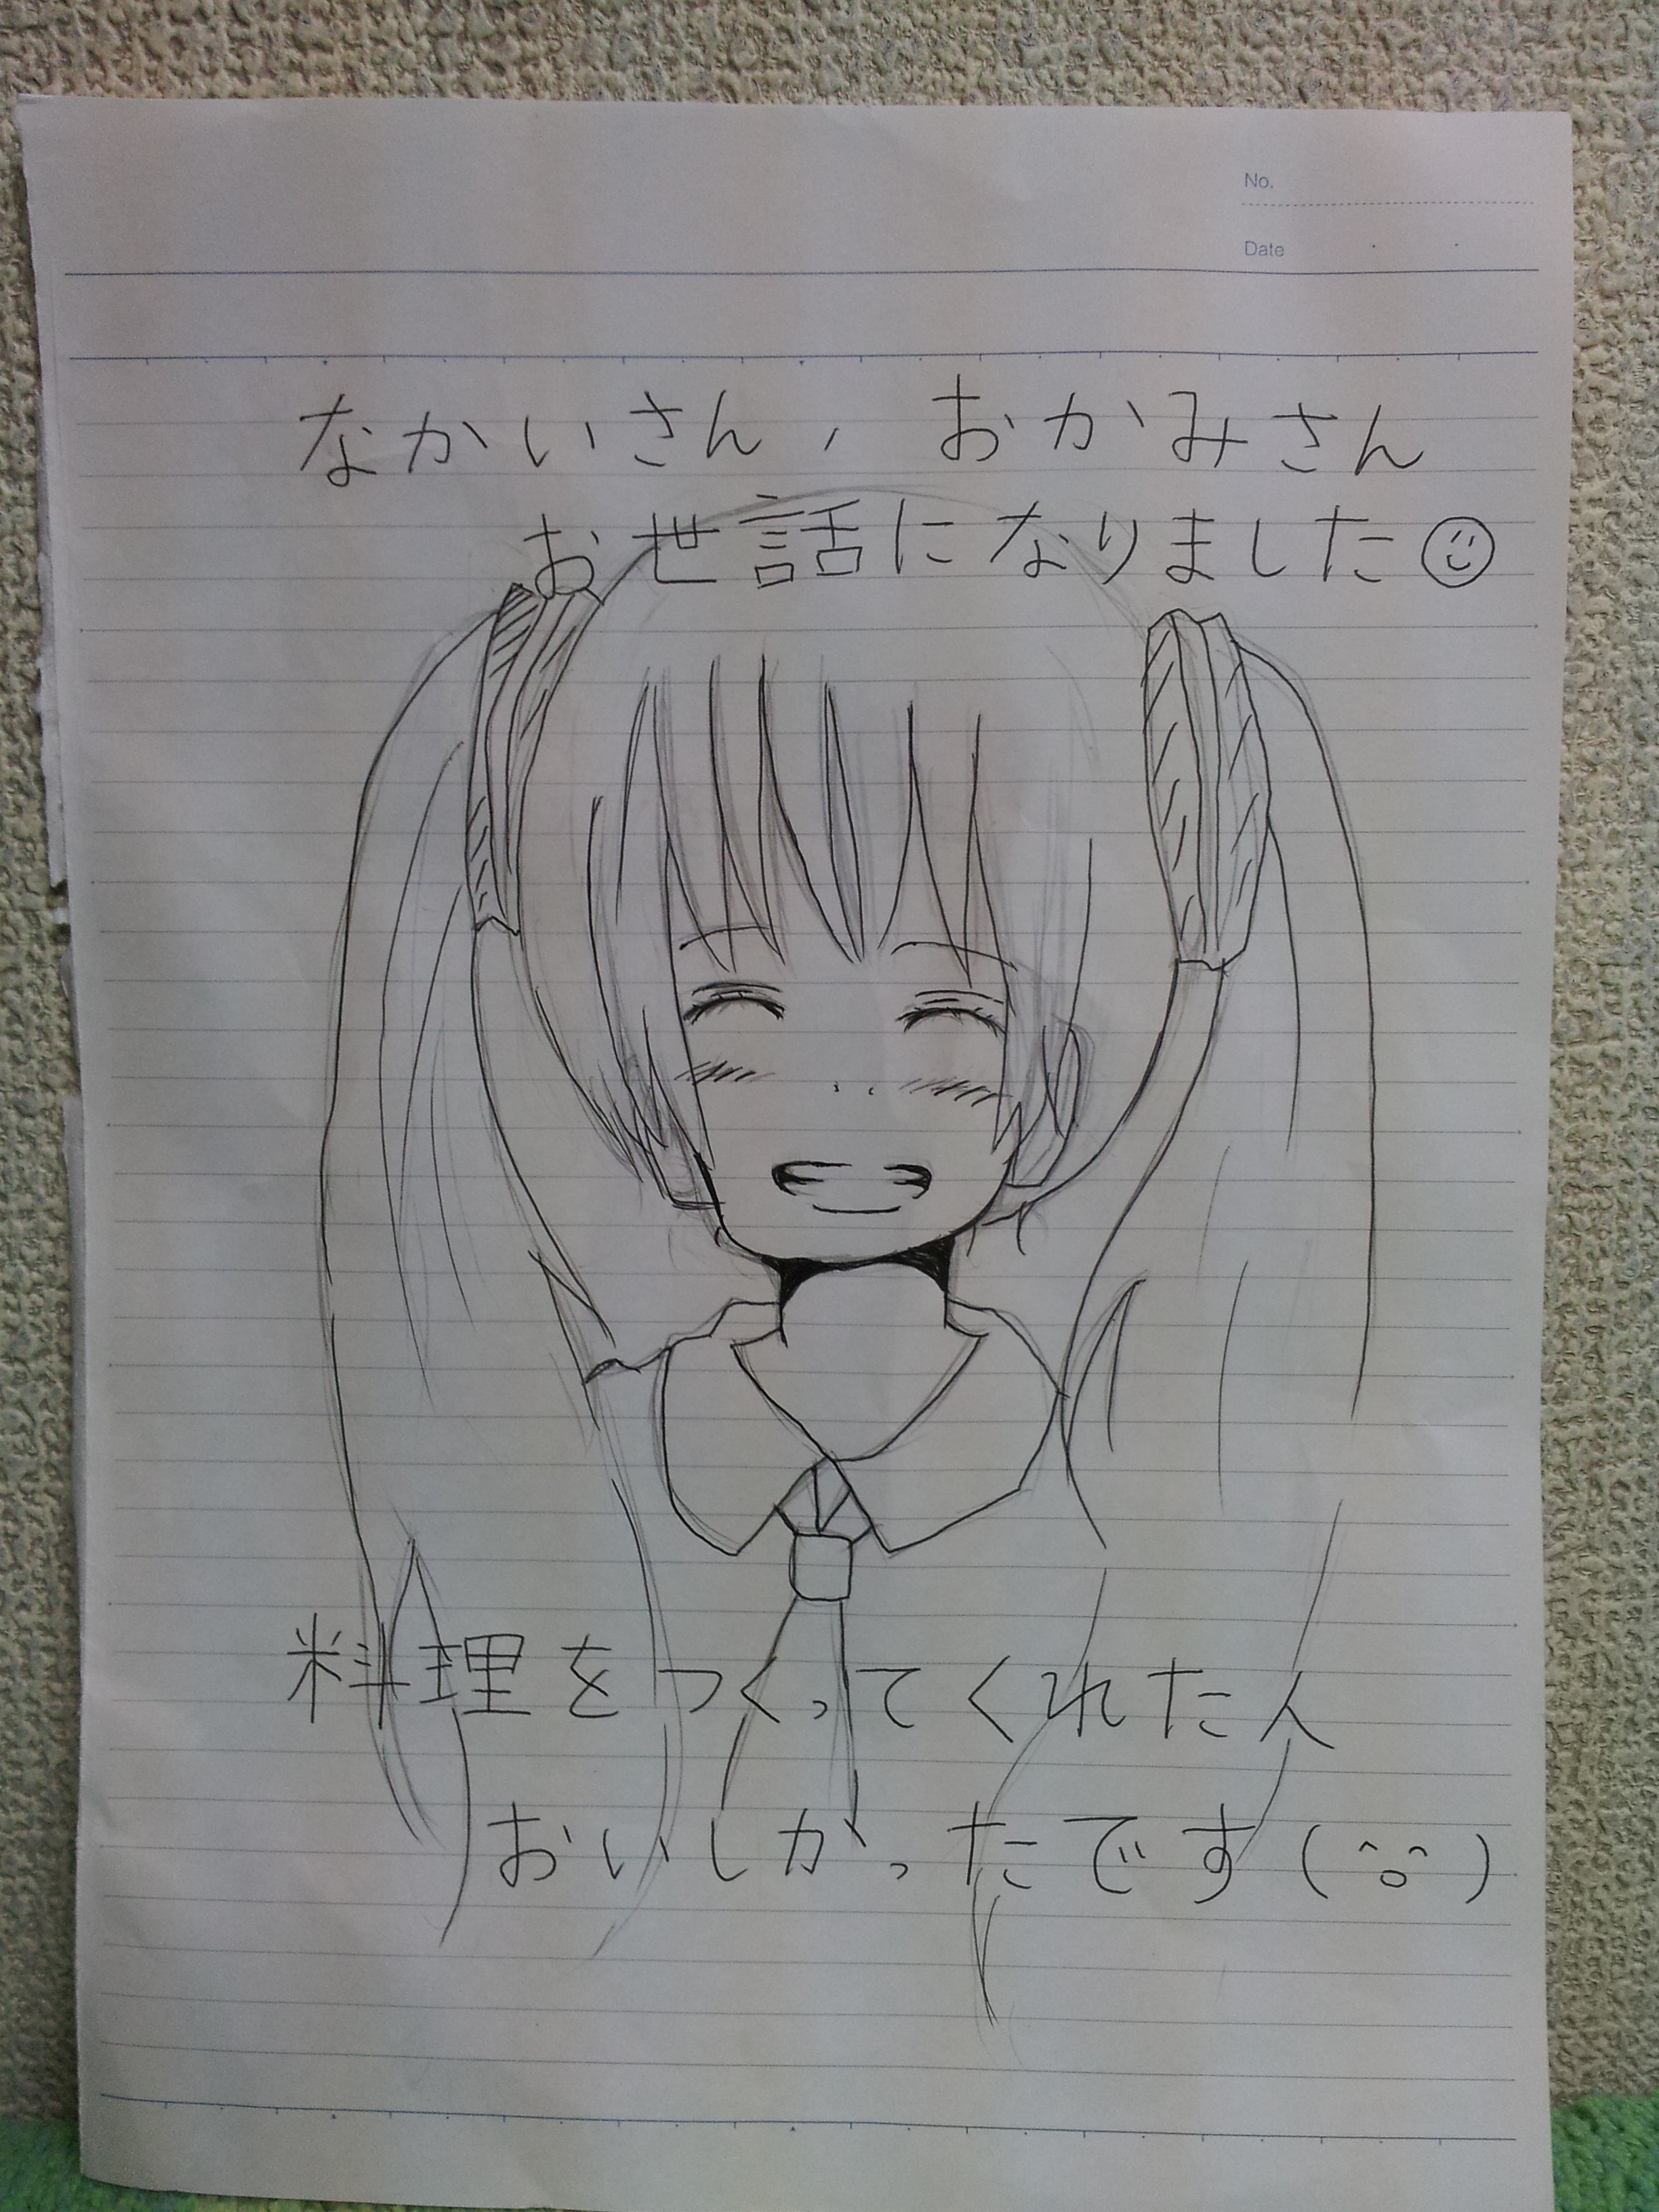 No.
Date
なかいさん、おかみさん
お世話になりました☺
料理をつくってくれた人
おいしかったです(^o^)